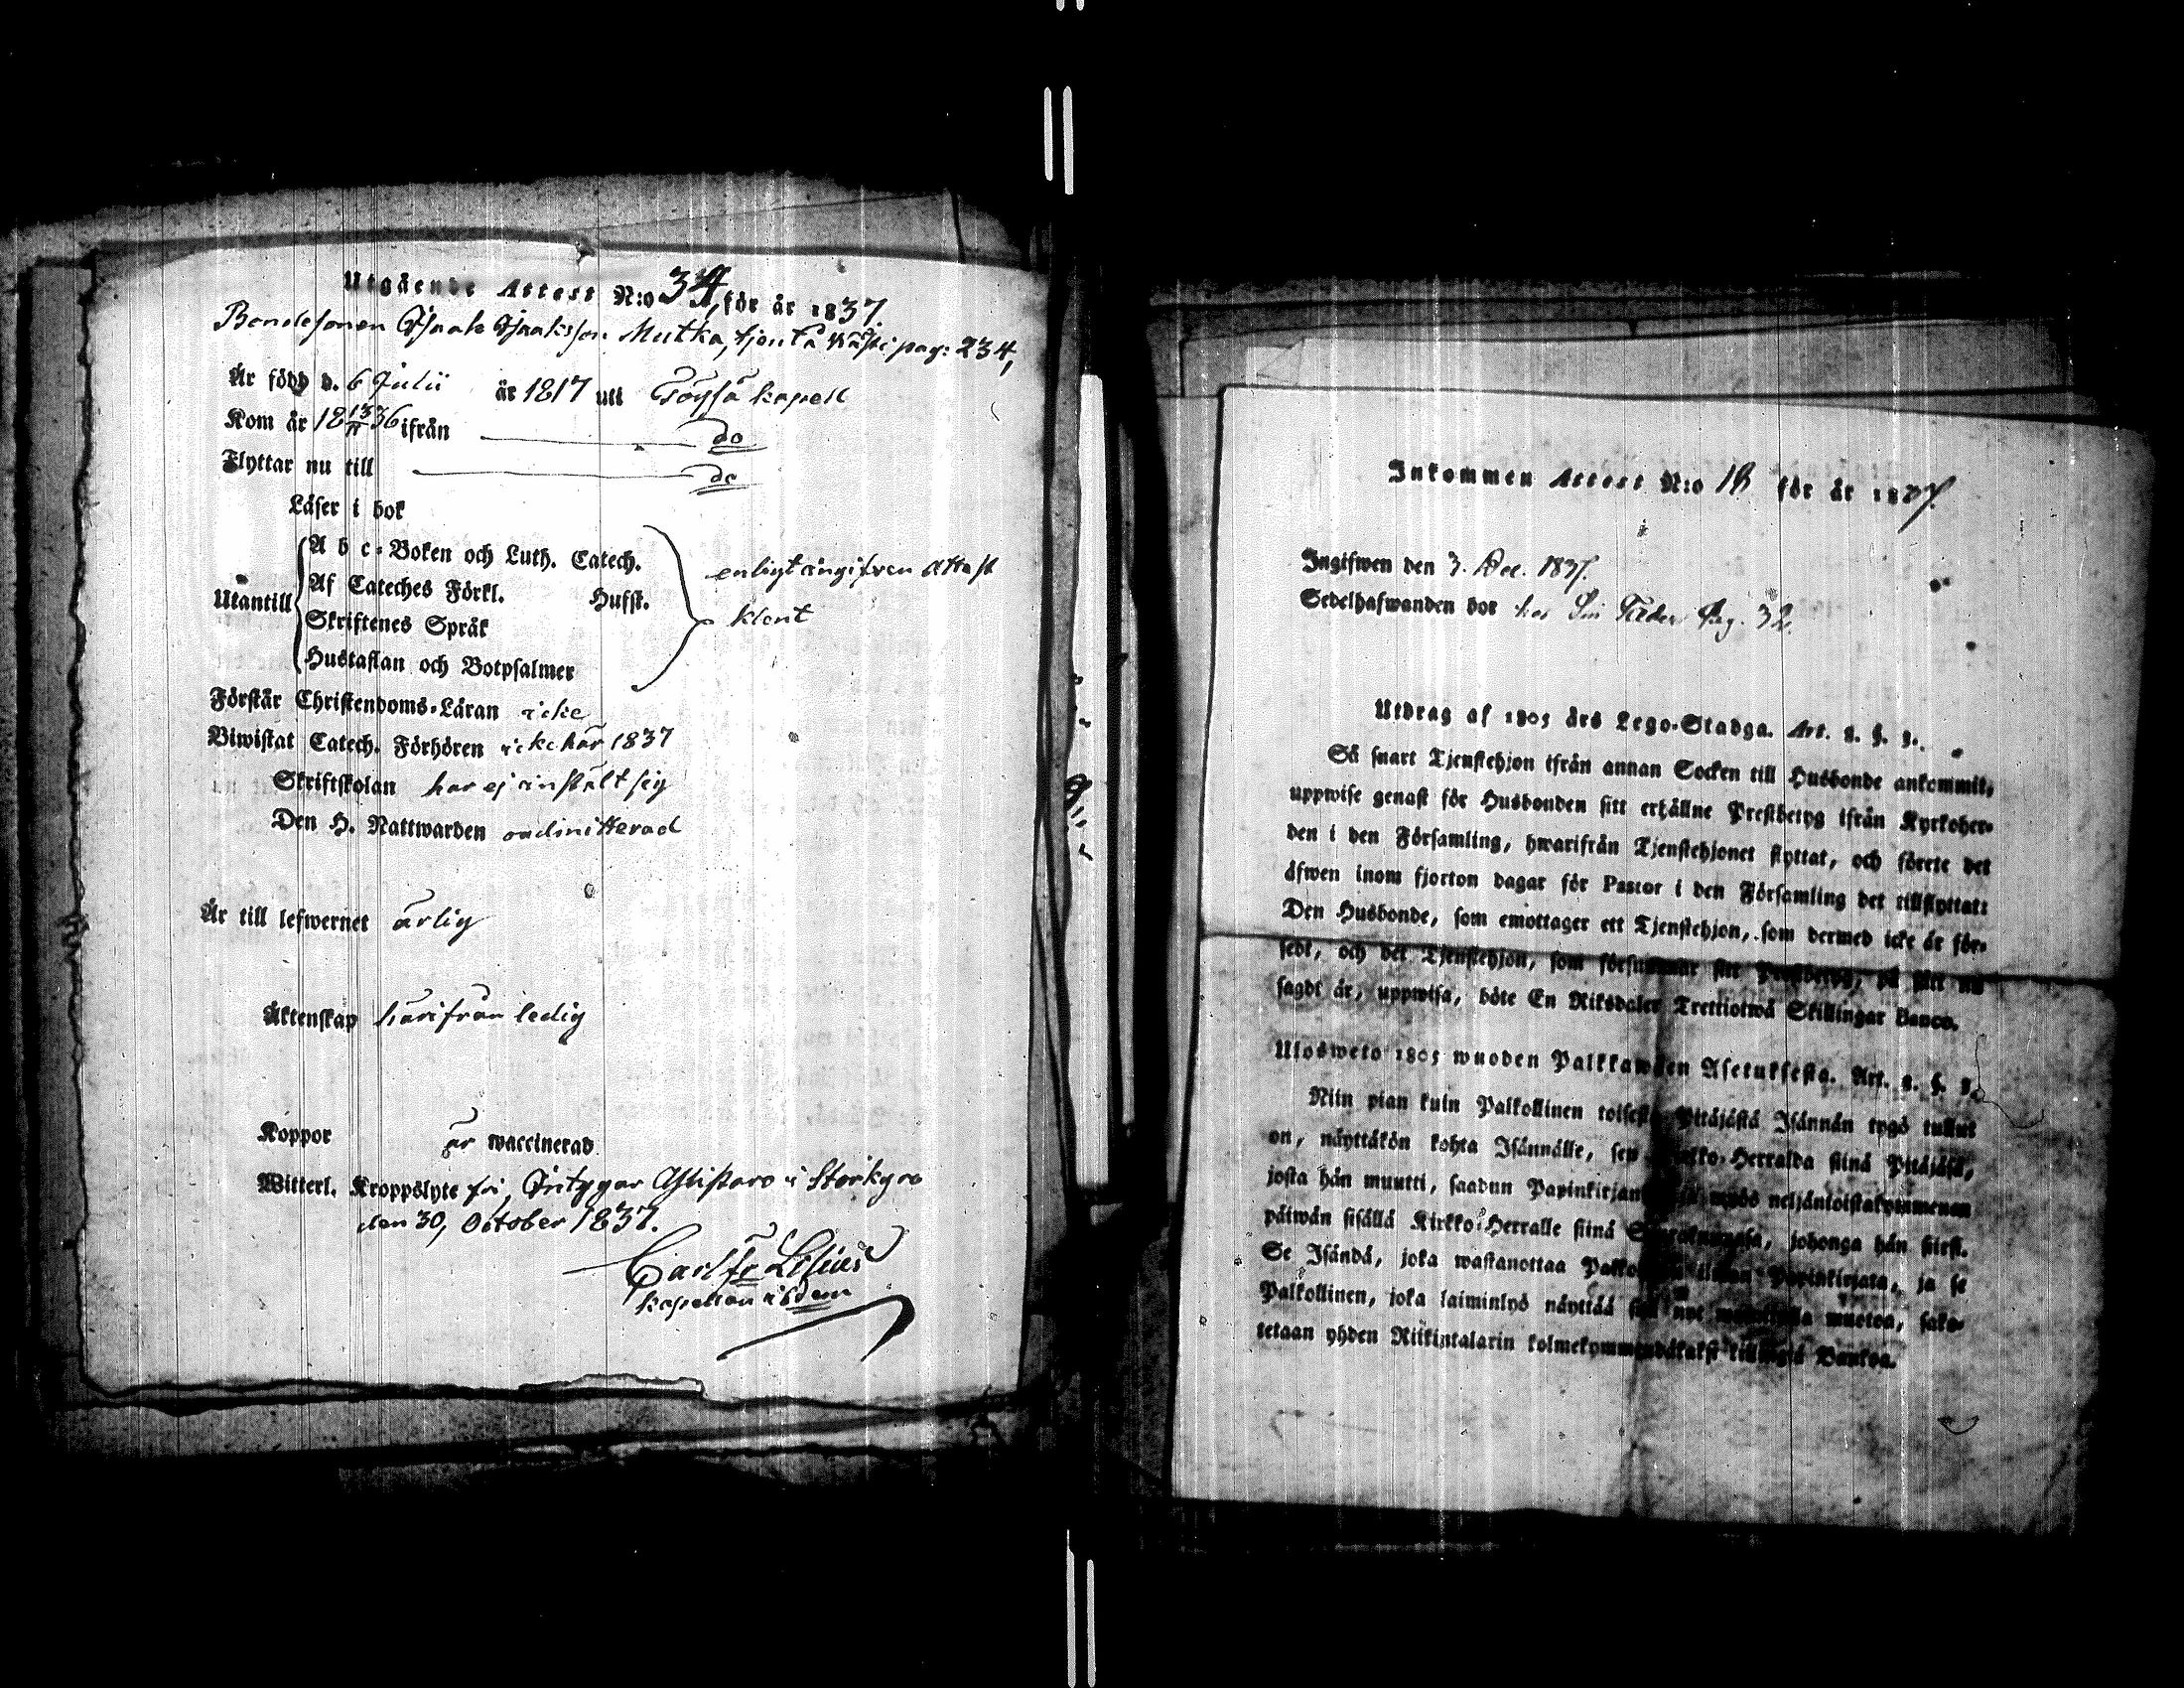 Utgående Attest N:o 34, för år 1837
Bondesonen Isaak Isaaksson Mutka, tjent å Wästi pag: 234,
Är född d. 6 Julii år 1817 uti Töysä kapell
Kom år 18 13/11 36 ifrån do
Flyttar nu till do
Läser i bok
A b c-Boken och Luth. Catech.
enligt ingifven Attest
Utantill Af Cateches Förkl. Hufst.
klent
Skriftenes Språk
Hustaflan och Botpsalmer
Förstår Christendoms-Läran icke
Biwistat Catech. Förhören icke här 1837
Skriftskolan har ej instält sig
Den H. Nattwarden oadmitterad
Är till lefwernet ärlig
Äktenskap härifrån ledig
Koppor är waccinerad
Witterl. Kroppslyte fri, Intygar Ylistaro i Storkyro
den 30, October 1837.
Carl Fr Lilius
kapellan ibdem
Inkommen Attest N:o 18 för år 1837.
Ingifwen den 3. Dec. 1837.
Sedelhafwanden bor hos Sin Fader Pag. 32.
Utdrag af 1805 års Lego-Stadga. Art. 2. §. 3.
Så snart Tjenstehjon ifrån annan Socken till Husbonde ankommit,
uppwise genast för Husbonden sitt erhållne Prestbetyg ifrån Kyrkoher-
den i den Församling, hwarifrån Tjenstehjonet flyttat, och förete det
äfwen inom fjorton dagar för Pastor i den Församling det tillflyttat:
Den Husbonde, som emottager ett Tjenstehjon, som dermed icke är för-
sedt, och det Tjenstehjon, som försummar sitt Prestbetyg, på sätt nu
sagdt är, uppwisa, böte En Riksdaler Trettiotwå Skillingar Banco.
Ulosweto 1805 wuoden Palkkawäen Asetuksesta. Art. 2. §. 3.
Niin pian kuin Palkollinen toisesta Pitäjästä Isännän tygö tullut
on, näyttäkön kohta Isännälle, sen Kirkko-Herralda siinä Pitäjäsä,
josta hän muutti, saadun Papinkirjan myös neljäntoistakymmenen
päiwän sisällä Kirkko-Herralle siinä Seurakunnasa, johonga hän siirsi.
Se Isändä, joka wastanottaa Palkollisen ilman Papinkirjata, ja se
Palkollinen, joka laiminlyö näyttää sen nyt muotoa, sako-
tetaan yhden Riikintalarin kolmekymmendäkaksi killingiä Bankoa.